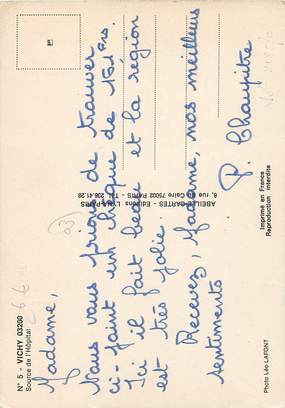 N° 5 - VICHY 03200
Source de l'Hôpital
Madame,
Nous vous prions de trouver
ci-joint un chèque de 151 Frs.
Ici il fait beau et la région
est très jolie.
Recevez, Madame, nos meilleurs
sentiments
P. Chaupitre
ABEILLE-CARTES - Editions LYNA-PARIS
8, rue du Caire 75002 PARIS - Tél. 236.41.28
Imprimé en France
Reproduction interdite
Photo Léo LAFONT